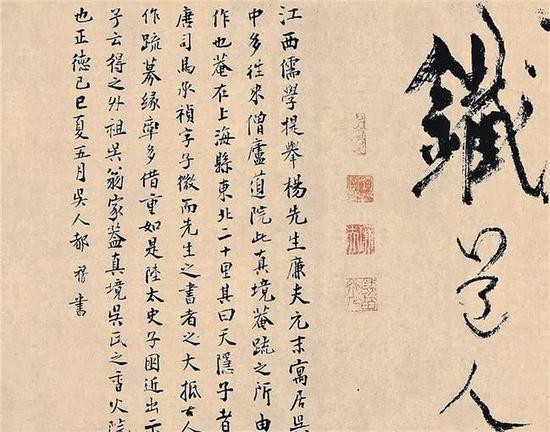 鐵道人
江西儒學提舉楊先生廉夫元末寓居吳
中多往来僧廬道院此真境菴疏之所由
作也菴在上海縣東北二十里其曰天隱子者
唐司馬承禎字子微而先生之書者之大抵古人
作疏募緣率多借重如是陸太史子囦近出示
予云得之外祖吳翁家蓋真境吳氏之香火院
也正德己巳夏五月吳人都穆書